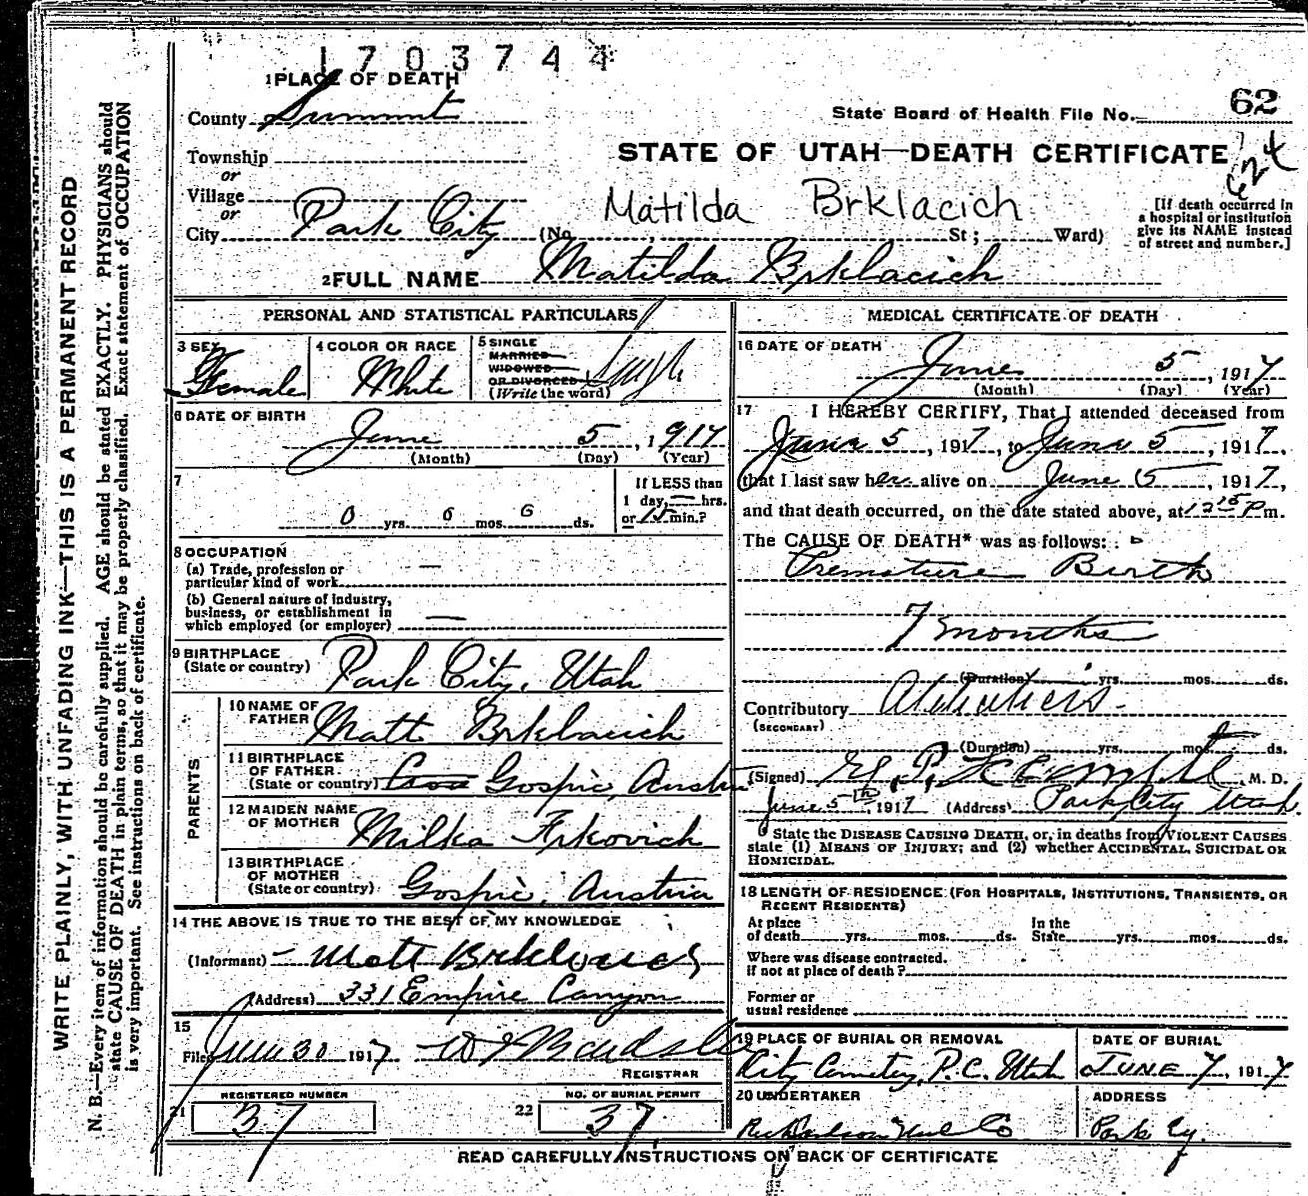 1703744
1 PLACE OF DEATH
County Summit
State Board of Health File No. 62
Township
STATE OF UTAH—DEATH CERTIFICATE
624
or
Village
or
Matilda Brklacich
[If death occurred in
a hospital or institution
give its NAME instead
of street and number.]
City Park City (No. St; Ward)
2 FULL NAME Matilda Brklacich
PERSONAL AND STATISTICAL PARTICULARS
3 SEX Female
4 COLOR OR RACE White
5 SINGLE
MARRIED
WIDOWED
OR DIVORCED
(Write the word)
Single
6 DATE OF BIRTH
June 5, 1917
(Month) (Day) (Year)
7
If LESS than
1 day, — hrs.
0 yrs. 0 mos. 0 ds. or 15 min.?
8 OCCUPATION
(a) Trade, profession or
particular kind of work —
(b) General nature of industry,
business, or establishment in
which employed (or employer) —
9 BIRTHPLACE
(State or country) Park City, Utah
PARENTS
10 NAME OF
FATHER Matt Brklacich
11 BIRTHPLACE
OF FATHER
(State or country) Gospic, Austria
12 MAIDEN NAME
OF MOTHER Milka Frkovich
13 BIRTHPLACE
OF MOTHER
(State or country) Gospic, Austria
14 THE ABOVE IS TRUE TO THE BEST OF MY KNOWLEDGE
(Informant) Matt Brklacich
(Address) 331 Empire Canyon
15
Filed June 30 1917
REGISTRAR
21 REGISTERED NUMBER
37
22 NO. OF BURIAL PERMIT
37
MEDICAL CERTIFICATE OF DEATH
16 DATE OF DEATH
June 5, 1917
(Month) (Day) (Year)
17 I HEREBY CERTIFY, That I attended deceased from
June 5, 1917, to June 5, 1917,
that I last saw her alive on June 5, 1917,
and that death occurred, on the date stated above, at 12 15 P m.
The CAUSE OF DEATH* was as follows:
Premature Birth
7 months
(Duration) yrs. mos. ds.
Contributory
(SECONDARY)
(Duration) yrs. mos. ds.
(Signed) M. D.
June 5th 1917 (Address) Park City Utah.
State the DISEASE CAUSING DEATH, or, in deaths from VIOLENT CAUSES
state (1) MEANS OF INJURY; and (2) whether ACCIDENTAL, SUICIDAL OR
HOMICIDAL.
18 LENGTH OF RESIDENCE (FOR HOSPITALS, INSTITUTIONS, TRANSIENTS, OR
RECENT RESIDENTS)
At place In the
of death yrs. mos. ds. State yrs. mos. ds.
Where was disease contracted,
if not at place of death?
Former or
usual residence
19 PLACE OF BURIAL OR REMOVAL
City Cemetery, P.C. Utah
DATE OF BURIAL
JUNE 7, 1917
20 UNDERTAKER
Richardson Co
ADDRESS
Park Cy.
READ CAREFULLY INSTRUCTIONS ON BACK OF CERTIFICATE
WRITE PLAINLY, WITH UNFADING INK—THIS IS A PERMANENT RECORD
N. B.—Every item of information should be carefully supplied. AGE should be stated EXACTLY. PHYSICIANS should
state CAUSE OF DEATH in plain terms, so that it may be properly classified. Exact statement of OCCUPATION
is very important. See instructions on back of certificate.